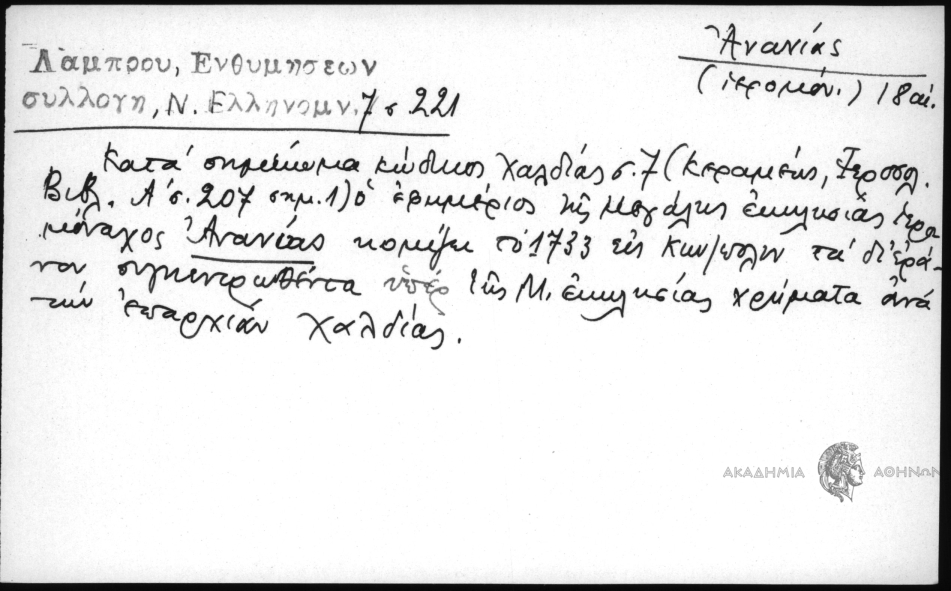 Λάμπρου, Ενθυμήσεων
συλλογή, Ν. Ελληνομν. 7 σ 221
Ἀνανίας
(ἱερομόν.) 18 αἰ.
Κατά σημείωμα κώδικος Χαλδίας σ. 7 (Κεραμεύς, Ἱεροσολ.
Βιβλ. Α' σ. 207 σημ. 1) ὁ ἐφημέριος τῆς Μεγάλης ἐκκλησίας ἱερο
μόναχος Ἀνανίας κομίζει τό 1733 εἰς Κων/πολιν τά δι' ἐρά-
νου συγκεντρωθέντα ὑπέρ τῆς Μ. ἐκκλησίας χρήματα ἀνά
τήν ἐπαρχίαν Χαλδίας.
ΑΚΑΔΗΜΙΑ ΑΘΗΝΩΝ